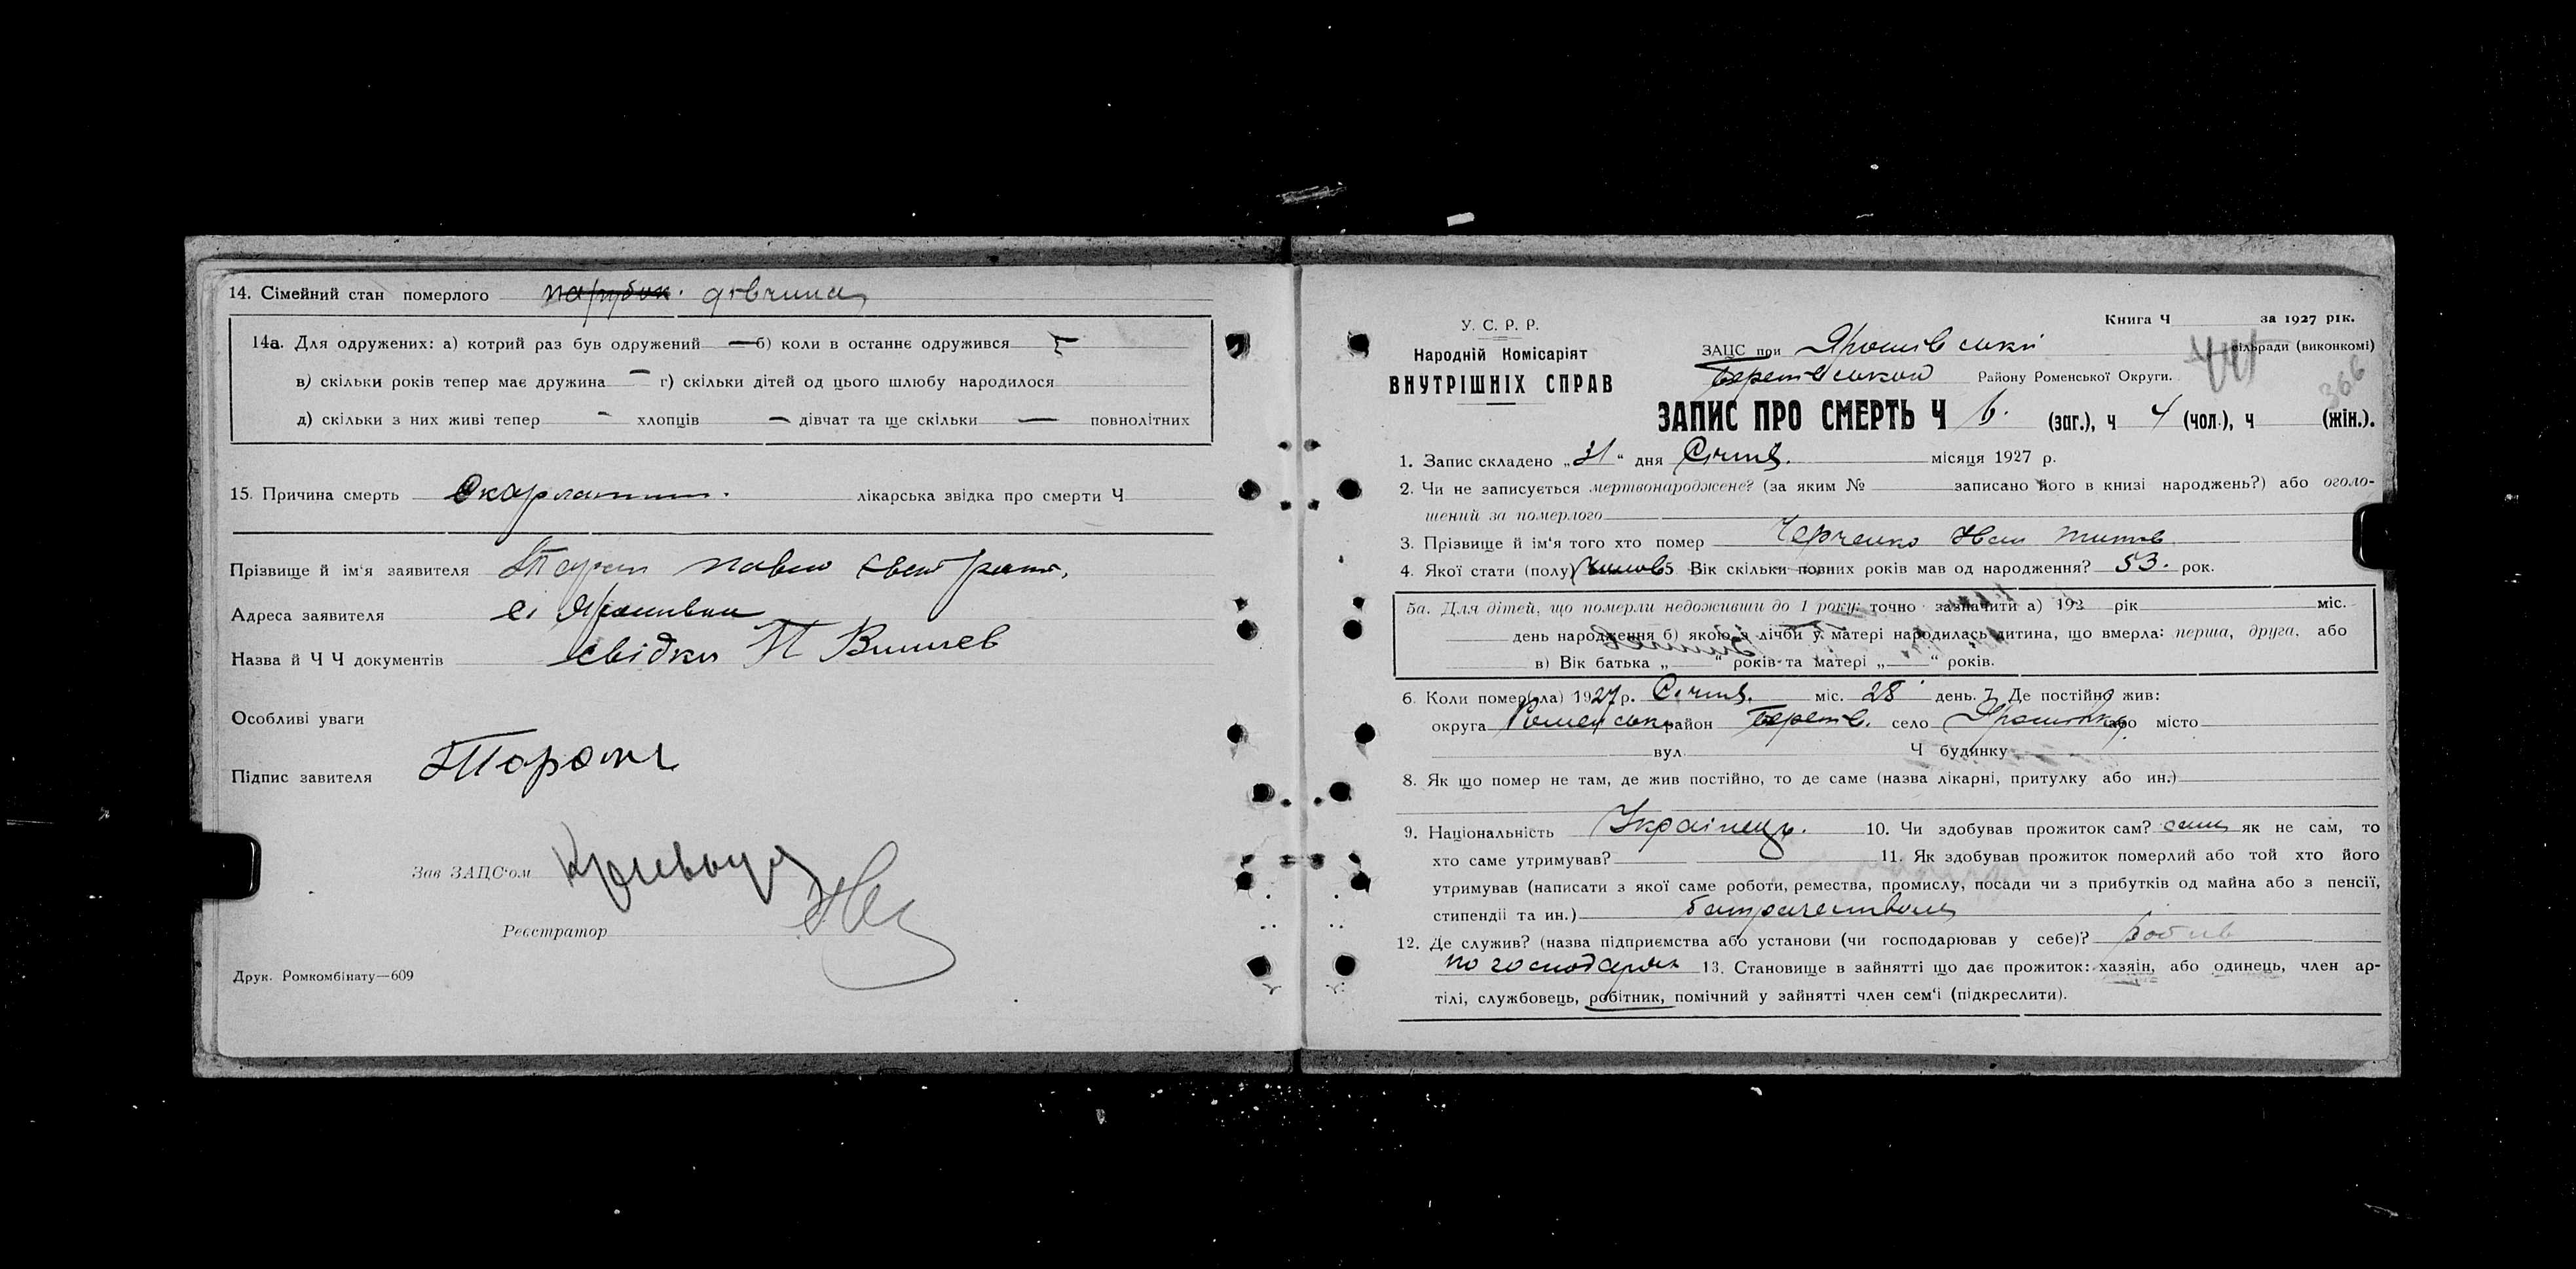 14. Сімейний стан померлого парубок. дівчина
14а. Для одружених: а) котрий раз був одружений — б) коли в останнє одружився
в) скільки років тепер має дружина — г) скільки дітей од цього шлюбу народилося
д) скільки з них живі тепер - хлопців — дівчат та ще скільки — повнолітних
15. Причина смерть Скарлатина. лікарська звідка про смерти Ч
Прізвище й ім'я заявителя Таран Павло
Адреса заявителя с. Ярошівка
Назва й Ч Ч документів свідки П
Особливі уваги
Підпис завителя Таран
Зав ЗАЦС'ом
Реєстратор
Друк. Ромкомбінату—609
У. С. Р. Р.
Народній Комісаріят
ВНУТРІШНІХ СПРАВ
Книга Ч за 1927 рік.
ЗАЦС при Ярошівській сільради (виконкомі)
Району Роменської Округи.
366
ЗАПИС ПРО СМЕРТЬ Ч 6. (заг.), ч 4 (чол.), ч (жін.).
1. Запис складено „31“ дня Січня. місяця 1927 р.
2. Чи не записується мертвонароджене? (за яким № записано його в книзі народжень?) або оголо-
шений за померлого
3. Прізвище й ім'я того хто помер Іван Титов
4. Якої стати (полу) 5 Вік скільки повних років мав од народження? 53. рок.
5а. Для дітей, що померли недоживши до 1 року: точно зазначити а) 192 рік міс.
день народження б) якою з лічби у матері народилась дитина, що вмерла: перша, друга, або
в) Вік батька „ “ років та матері „ “ років.
6. Коли помер(ла) 1927 р. Січня. міс. 28 день. 7. Де постійно жив:
округа Роменська район село Ярошівка або місто
вул Ч будинку
8. Як що помер не там, де жив постійно, то де саме (назва лікарні, притулку або ин.)
9. Національність Українець. 10. Чи здобував прожиток сам? сам як не сам, то
хто саме утримував? 11. Як здобував прожиток померлий або той хто його
утримував (написати з якої саме роботи, ремества, промислу, посади чи з прибутків од майна або з пенсії,
стипендії та ин.) батрачеством
12. Де служив? (назва підприємства або установи (чи господарював у себе)? робив
по господарях 13. Становище в зайнятті що дає прожиток: хазяїн, або одинець, член ар-
тілі, службовець, робітник, помічний у зайнятті член сем'ї (підкреслити).